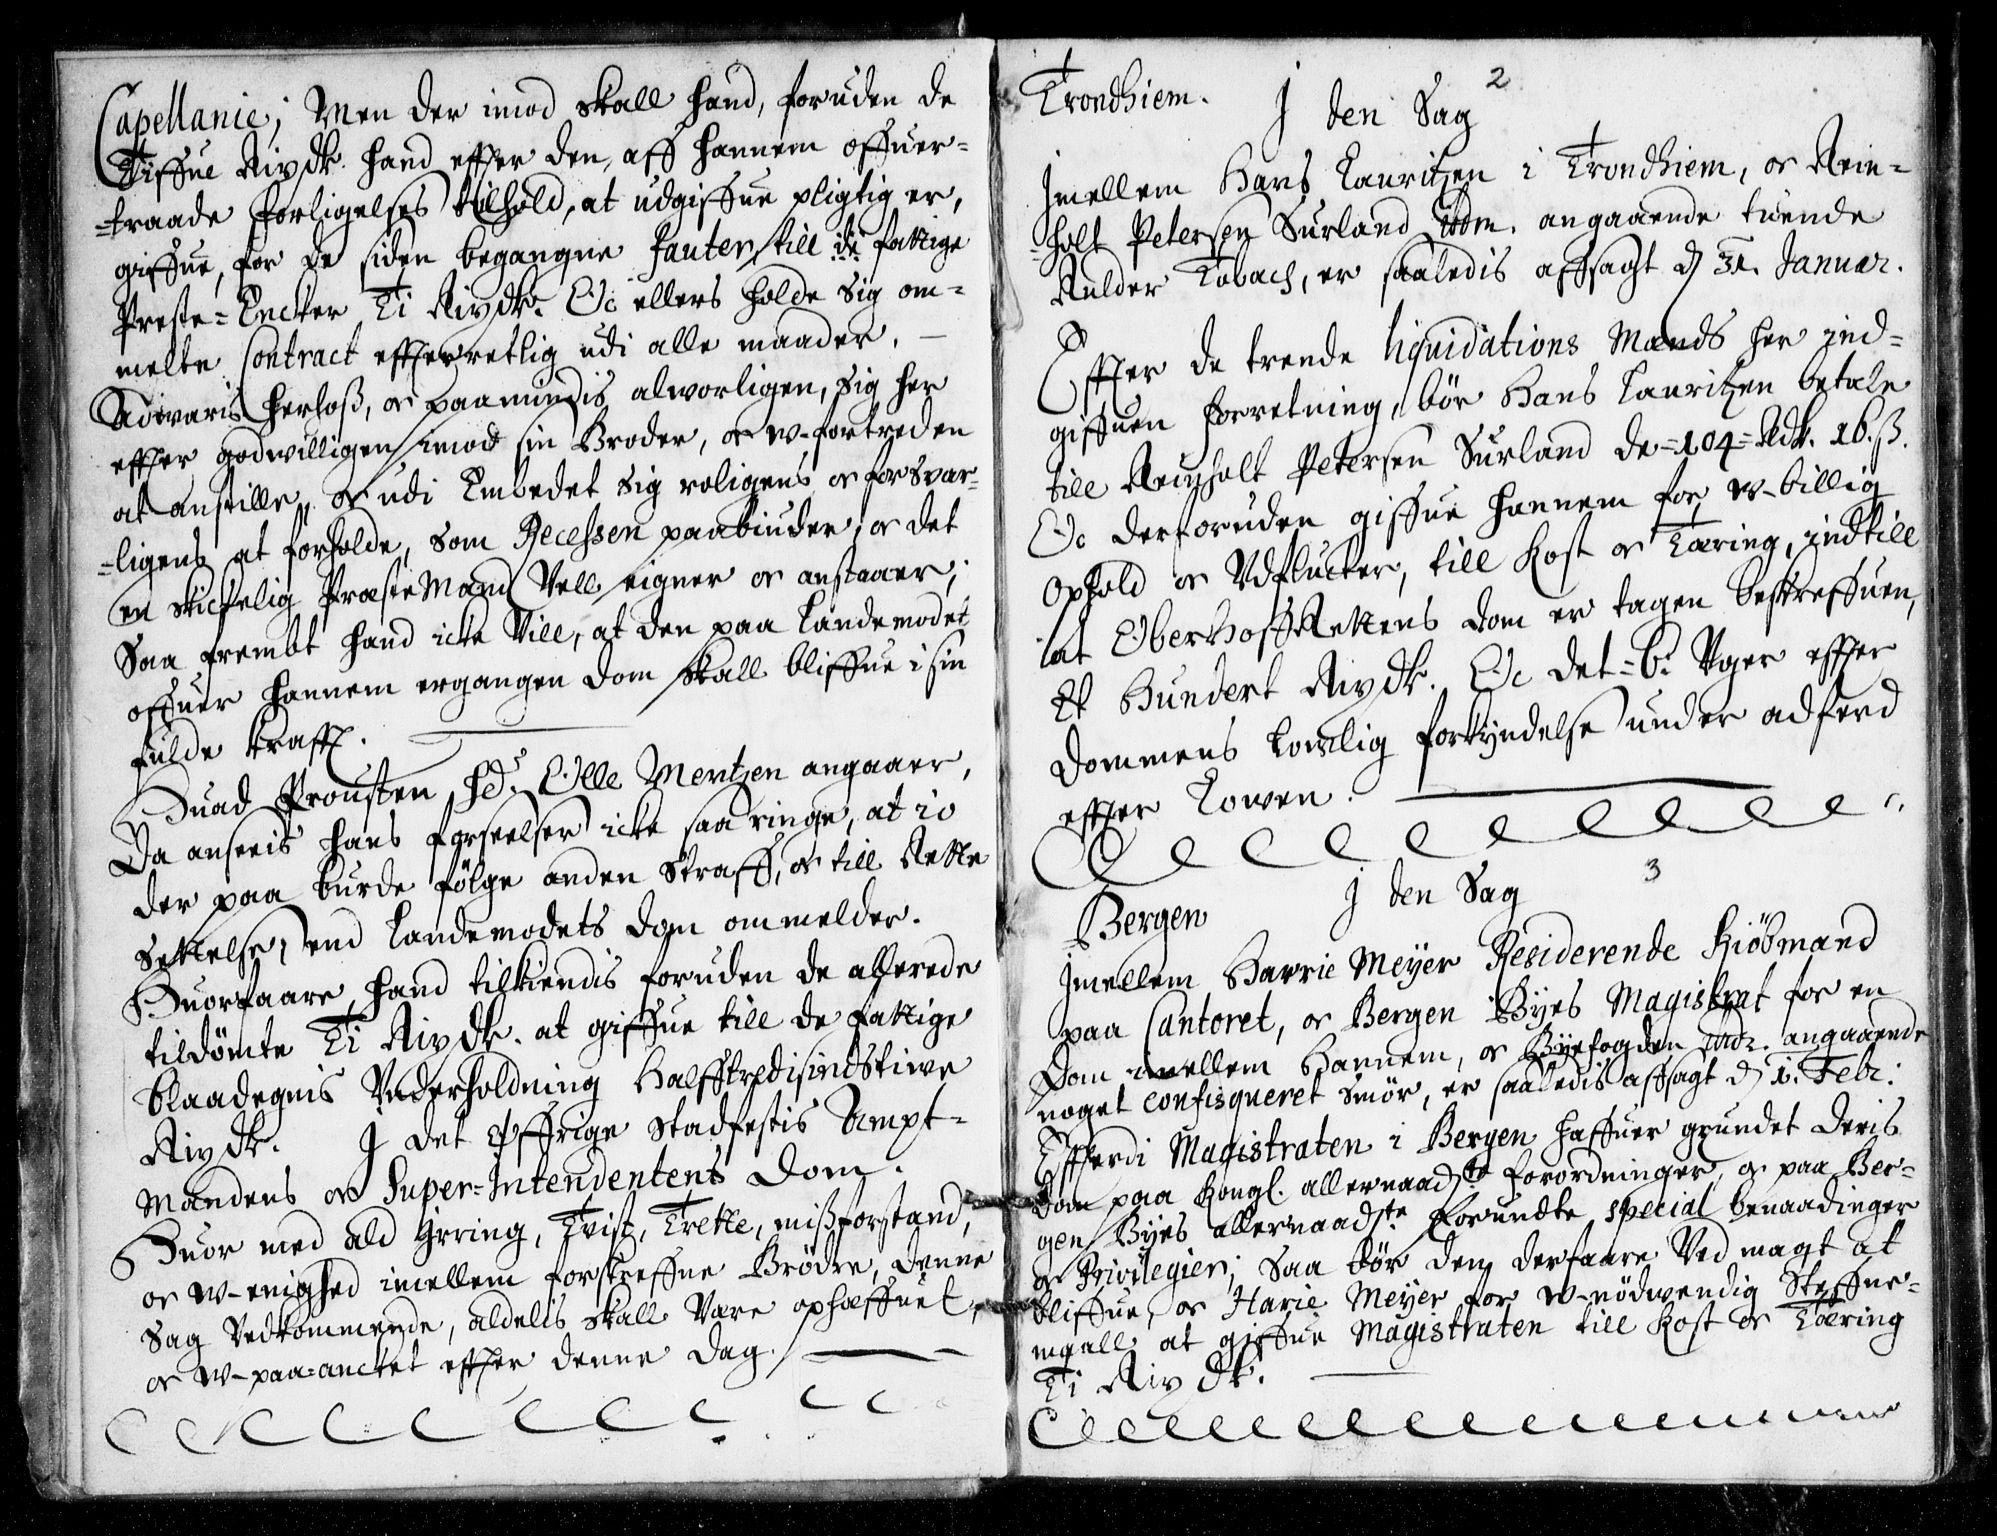 Capellanie; Men der imod skall hand, foruden de
Tiffue Rixdlr. hand effter den, aff hannem offuer-
-traade forligelses tilhold, at udgiffue pligtig er,
giffue, for de siden begangne fauter, till de fattige
Preste-Encker Ti Rixdlr. Oc ellers holde sig om-
melte Contract effterretlig udi alle maader. —
Advaris herhoß, oc paamindis alworligen, sig her
effter godwilligen imod sin Broder, oc w-fortreden
at anstille, oc udi Embedet sig roligens oc forsvar-
-ligens at forholde, som Recessen paabiuder, oc det
en skickelig Præste Mand Vell eigner oc anstaaer;
Saa frembt hand icke Vill, at den paa Landemodet
offuer hannem ergangen dom skall bliffue i sin
fulde krafft.
Huad Prousten Hr. Olle Mentzen angaaer,
Da anseeis hans forseelser icke saa ringe, at io
der paa burde følge anden Straff, oc till Rette
Settelse, end Landemodets dom ommelder.
Huorfaare hand tilkiendis foruden de allerede
tildømte Ti Rixdlr. at giffue till de fattige
Vnderholdning Halfftredisindstiwe
Rixdlr. J det øffrige stadfestis Ampt-
mandens oc Super-Intendentens Dom.
Huor med ald Jrring, Tvist, Trette, mißforstand,
oc w-enighed imellem forskreffne Brødre, denne
Sag Vedkommende, aldelis skall Være ophæffuet,
oc w-paa-ancket effter denne dag.
Trondhiem. 2
J den Sag
Jmellem Hans Lauritzen i Trondhiem, oc Rein-
-holt Petersen Surland ibdm. angaaende tuende
Ruller Tobach, er saaledis affsagt d 31. Januar.
Effter de trende liquidations Mænds her ind-
giffuen forretning, bør Hans Lauritzen betale
till Reinholt Petersen Surland de -104- Rdlr. 16. ß.
Oc derforuden giffue hannem for w-billig
Ophold oc Udflucter, till Kost oc Tæring, indtill
at OberHoffRettens dom er tagen beskreffuen,
Et Hundert Rixdlr. Oc det -6. Uger effter
dommens Lowlig forkyndelse under adferd
effter Lowen.
3
J den Sag
Bergen
Jmellem Harrie Meyer Residerende Kiøbmand
paa Contoret, oc Bergen Byes Magistrat for en
Dom imellem Hannem, oc Byefogden angaaende
noget confisqueret Smør, er saaledis affsagt d 1. Febr:
Effterdi Magistraten i Bergen haffuer grundet deris
Dom paa Kongl. allernaadste forordninger, oc paa Ber-
gen Byes allernaadste forundte special benaadinger
oc Privilegier; Saa bør den derfaare Ved magt at
bliffue, oc Harie Meyer for w-nødwendig Steffne-
maall at giffue Magistraten till Kost oc Tæring
Ti Rixdlr.